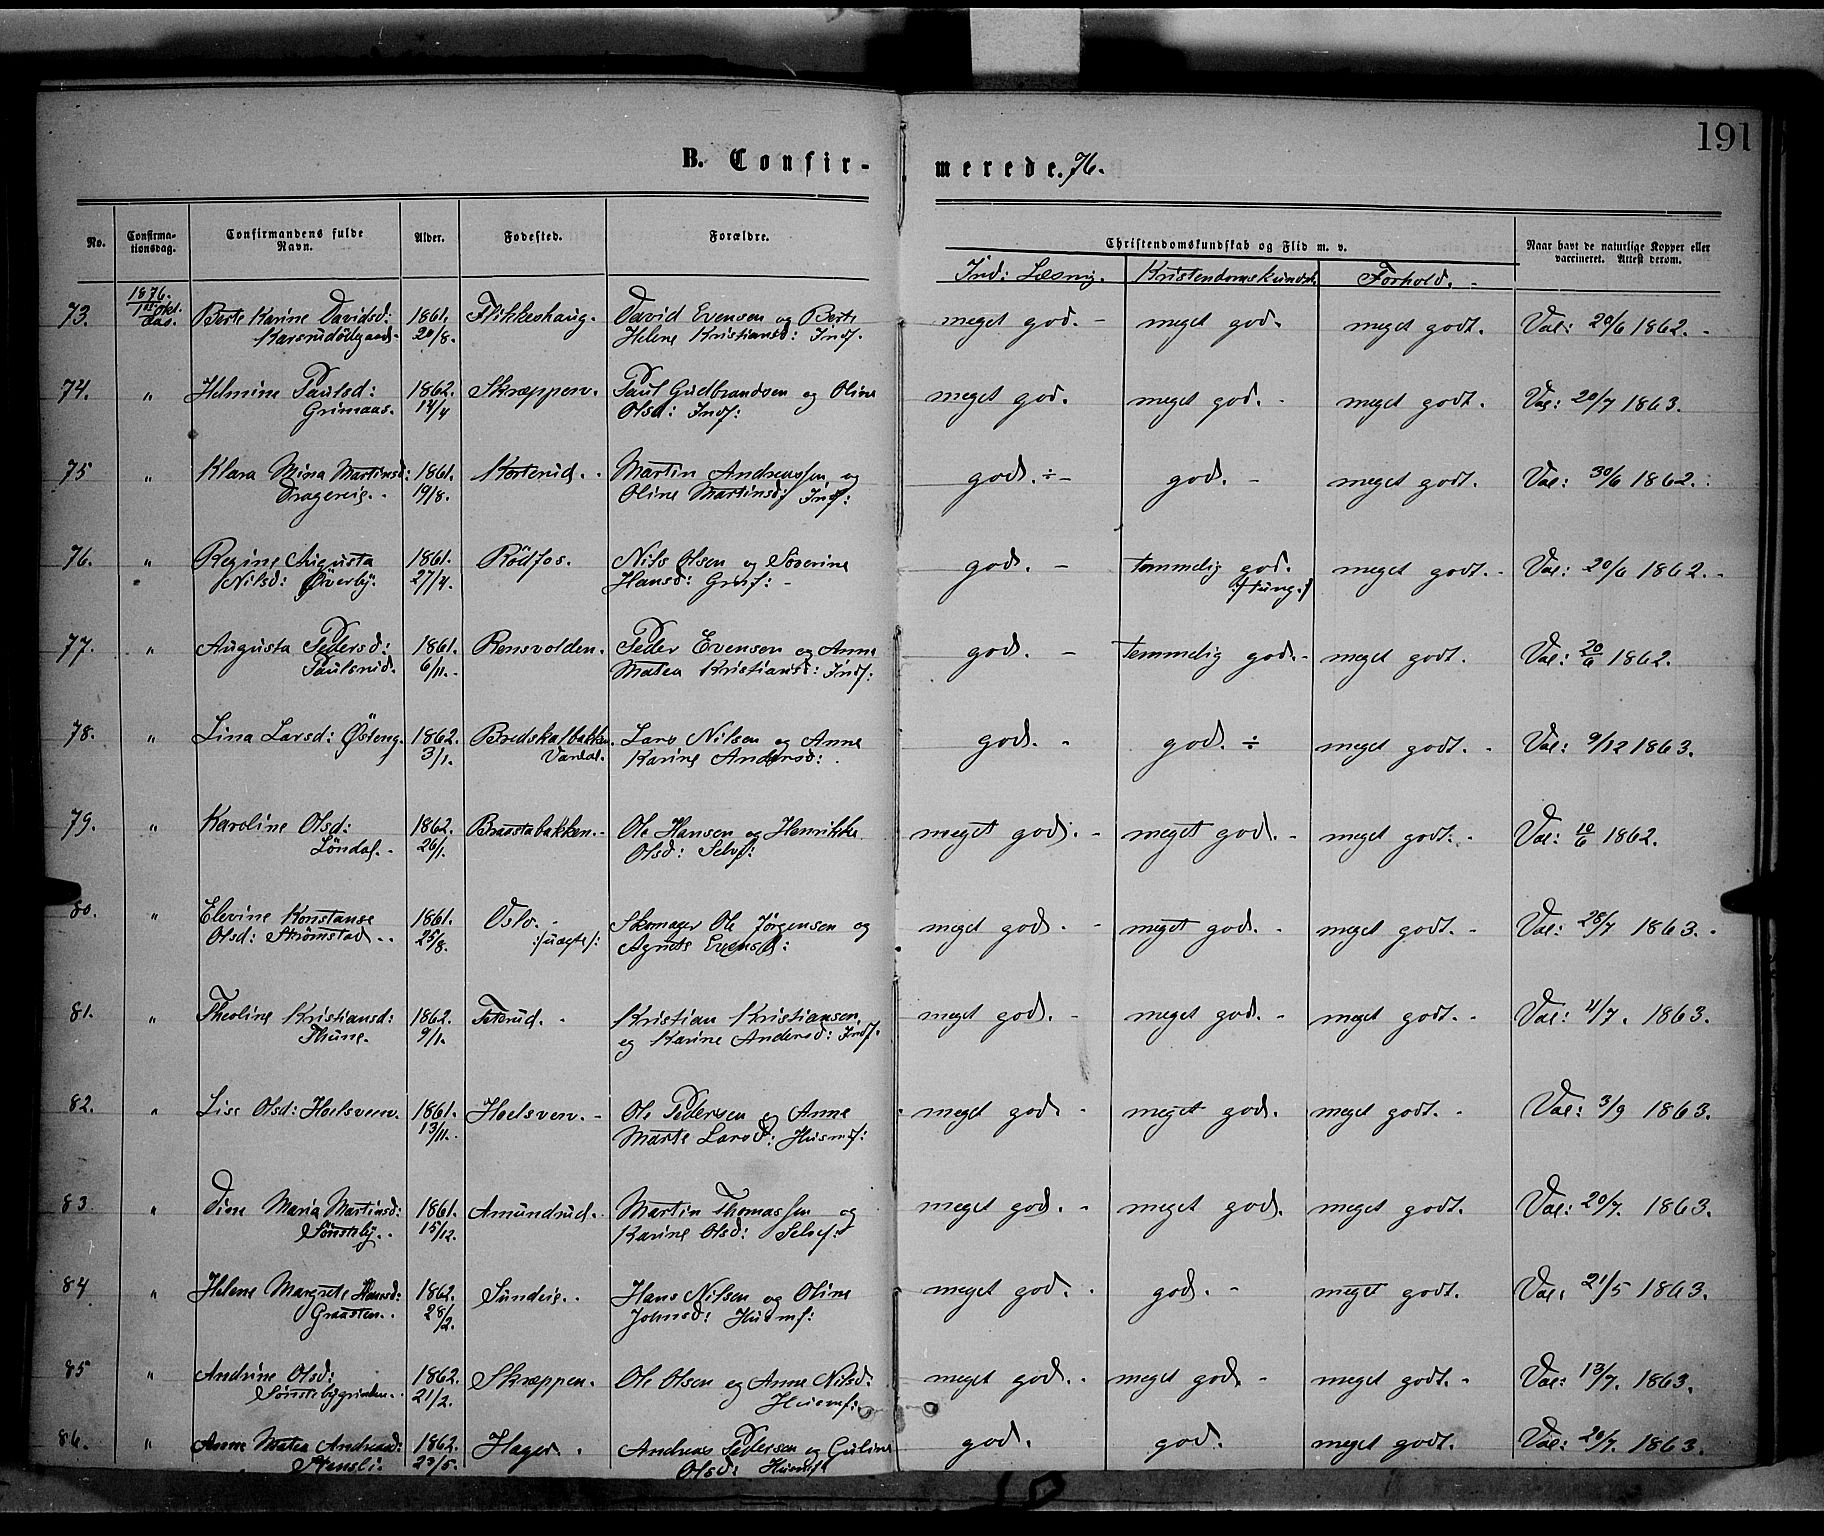 191
B. Confirmerede. 76.
No. Confirmationsdag. Confirmandens fulde Navn. Alder. Fødested. Forældre. Christendomskundskab og Flid m. v. Naar havt de naturlige Kopper eller vaccineret. Attest derom.
Ind: Læsnig. Kristendomskundsk. Forhold.
73. 1876. 1ste Okt. Berte Karine Davidsd: 1861. Flikkeshaug. David Evensen og Berte meget god. - meget god. meget godt. Vac: 20/6 1862. -
20/8. Helene Kristiansd: Indf.
74. " Helmine Paulsd: 1862. Skræppen. Paul Gudbrandsen og Oline meget god. meget god. - meget godt. Vac: 20/7 1863.
Grimaas. 14/4 Olsd: Indf:
75 " Klara Mina Martinsd: 1861. Korterud. Martin Andreassen og god. ÷ - god. - meget godt. Vac: 30/6 1862.
Dragereie. 19/8. Oline Martinsd: Indf:
76. " Regine Augusta 1861. Rödfos. Nils Olsen og Severine god. - temmelig god. meget godt. - Vac: 20/6 1862. -
Nilsd: Øverby: 27/4. Hansd: Gruf: - /:tung:/
77. " Augusta Pedersd: 1861. Rensvolden. Peder Evensen og Anne god. - temmelig god. - meget godt. Vac: 20/6 1862.
Paulsrud. 6/11. Matea Kristiansd: Indf:
78. " Lina Larsd: Østeng. 1862. Bredskalbakken Lars Nilsen og Anne god. - god. ÷ meget godt. - Vac: 9/12 1863.
3/1. Vardal. Karine Andersd:
79. " Karoline Olsd: 1862. Braastabakken. - Ole Hansen og Henrikke meget god. - meget god. - meget godt. - Vac: 10/6 1862.
Löndal. - 26/1. Olsd: Selvf:
80. " Elevine Konstanse 1861. Oslo. - Skomager Ole Jørgensen og meget god. - meget god. - meget godt. - Vac: 28/7 1863. -
Olsd: Strømstad. 25/8. :/uægte/: Agnete Evensd:
81. " Theoline Kristiansd: 1862. Feterud. - Kristian Kristiansen meget god. - meget god. - meget godt. - Vac: 4/7. 1863.
Thune. 9/1. og Karine Andersd: Indf.
82. " Lise Olsd: Hoelsveen. 1861. Hoelsveen. - Ole Pedersen og Anne meget god. - meget god. meget godt. - Vac: 3/9 1863.
13/11. Marte Larsd: Husmf:
83. " Dine Maria Martinsd: 1861. Amundrud. Martin Thomassen og meget god. - meget god. meget godt. Vac: 20/7. 1863.
Sønsteby. 15/12. Karine Olsd: Selvf:
84 " Helene Margrete Hansd: 1862. Sundeie. Hans Nilsen og Oline meget god. - god. - meget godt. Vac. 21/5 1863.
Graasten. 28/2. Johnsd: Husmf:
85 " Andrine Olsd: 1862. Skræppen. Ole Olsen og Anne Nilsd. meget god. - meget god. - meget godt. - Vac: 13/7. 1863.
Sønstebygrinden. 21/2. Husmf:
86. " Anne Matea Andreasd: 1862. Hager. Andreas Pedersen og Guline god. god. meget godt. Vac: 20/7. 1863.
Stensli: 23/5. Olsd: Husmf
10